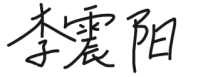 李震阳